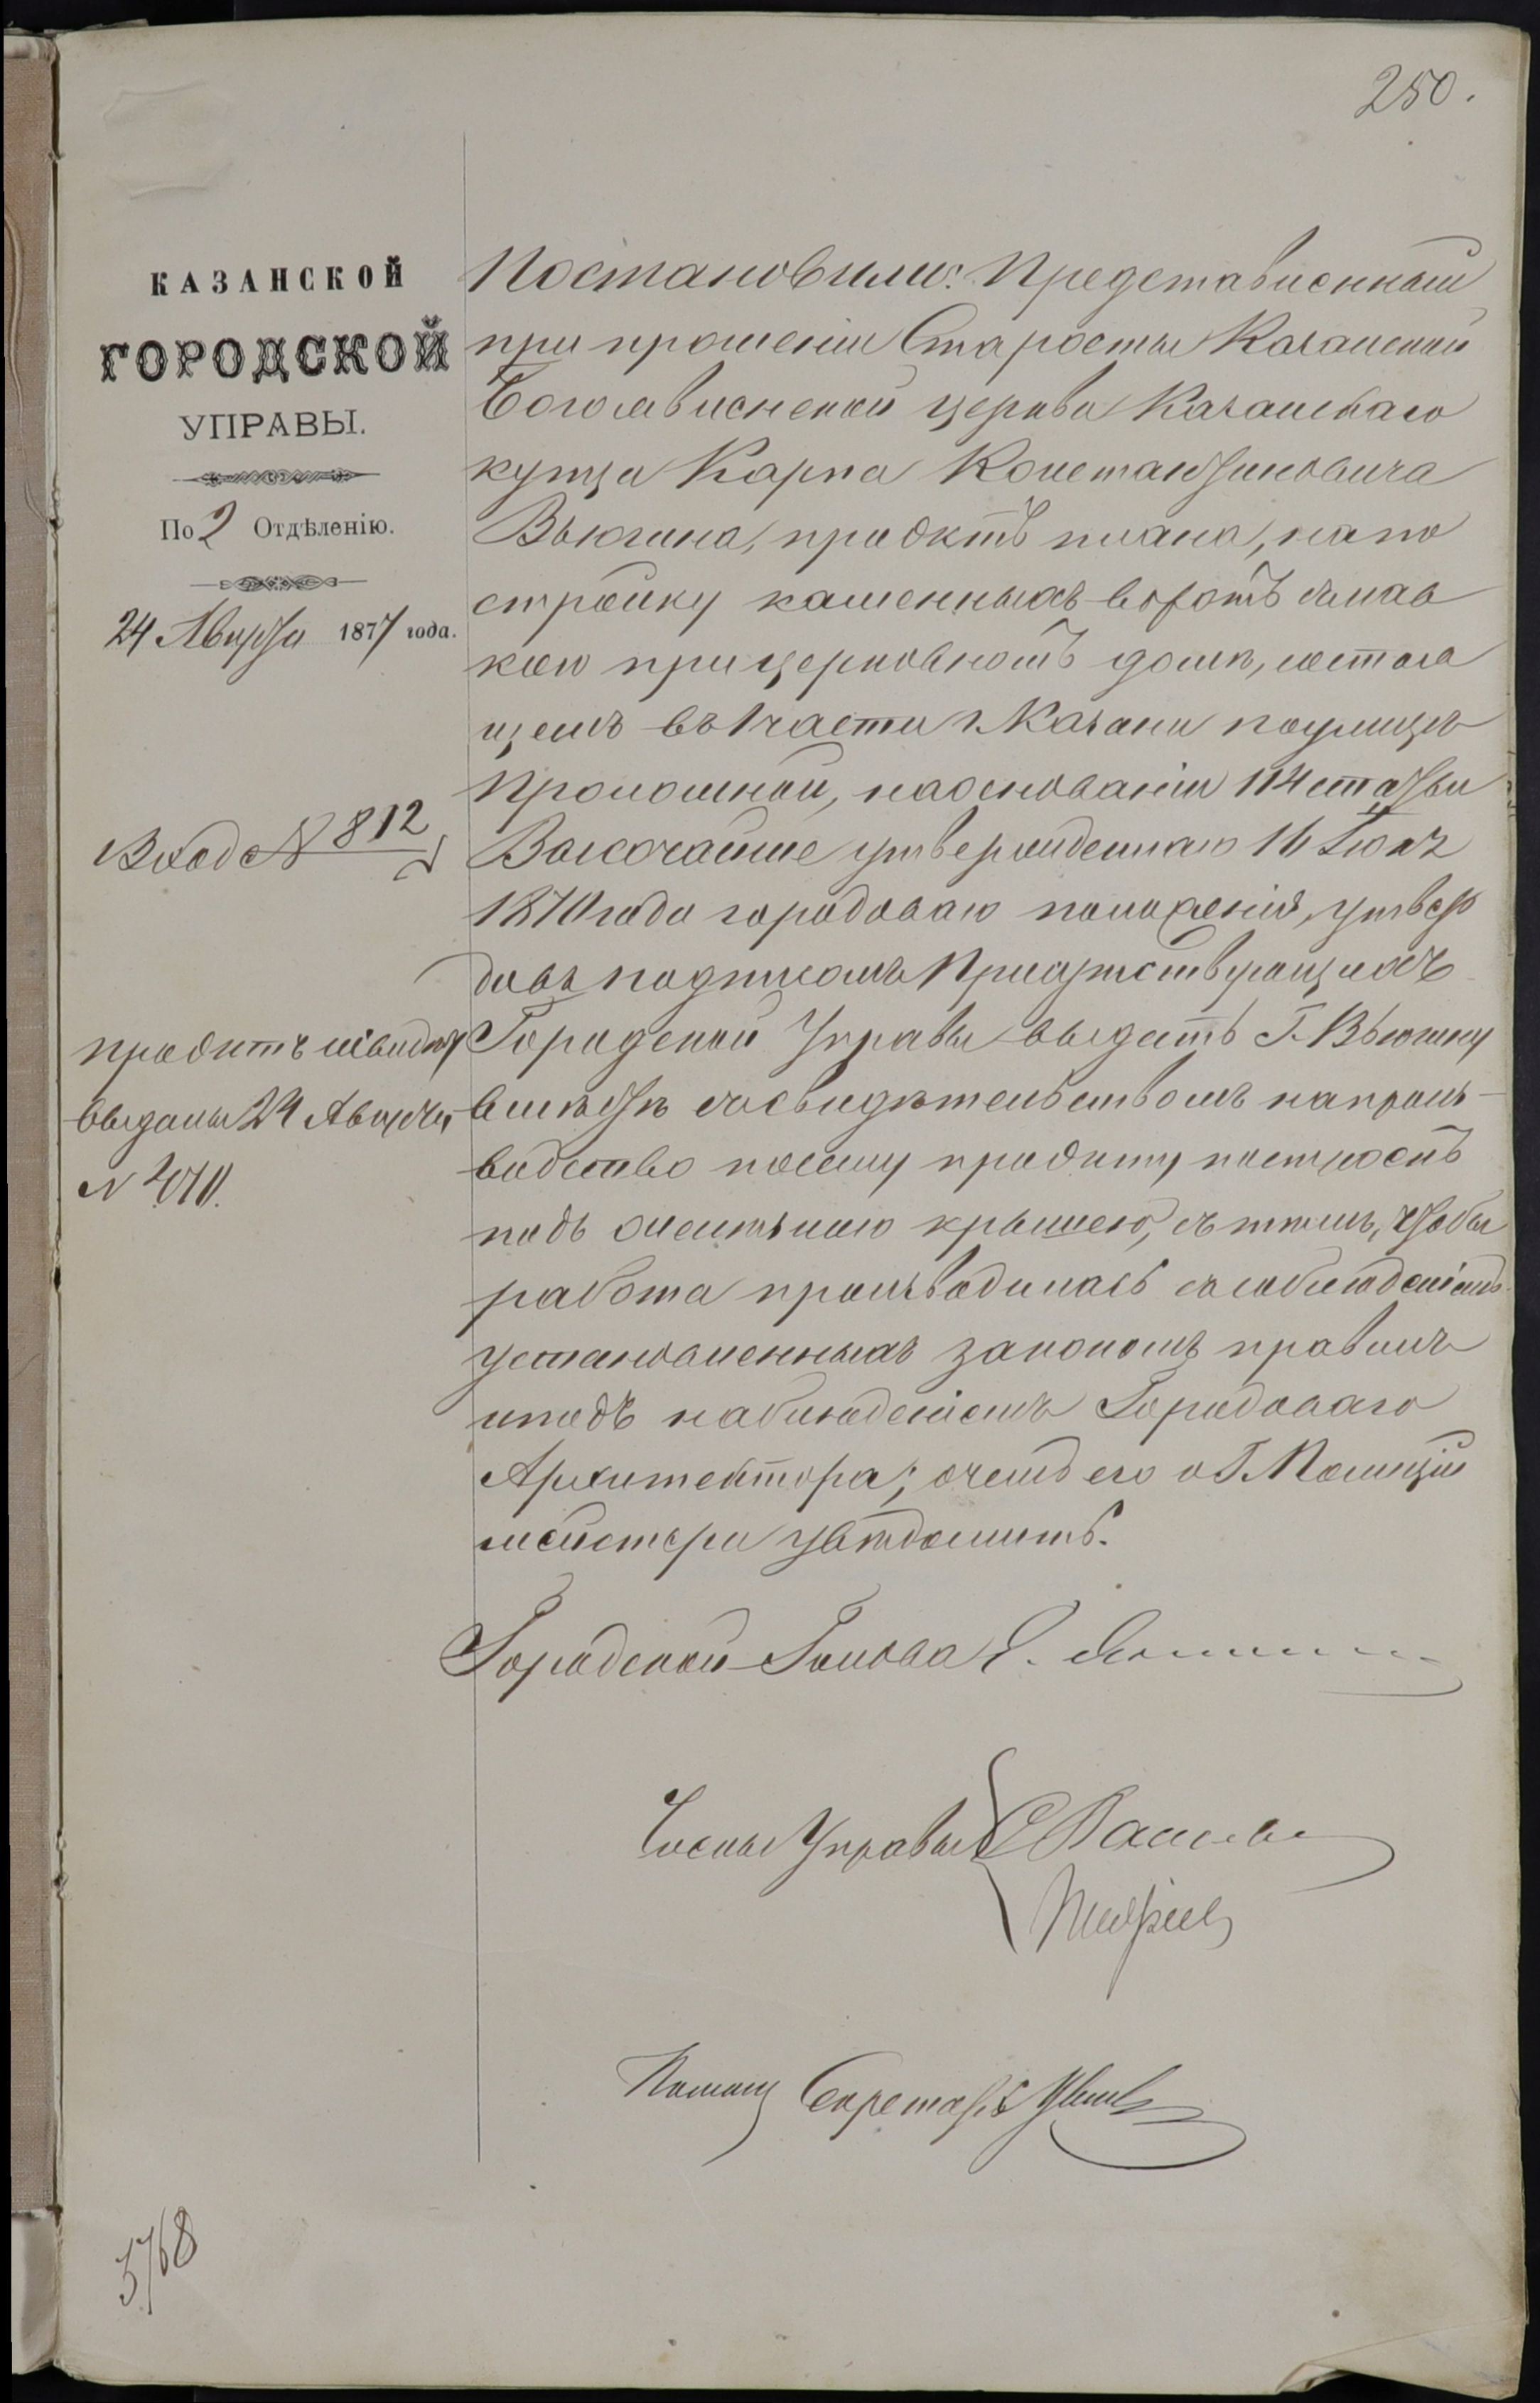 250.
КАЗАНСКОЙ
ГОРОДСКОЙ
УПРАВЫ.
По 2 Отдѣленію.
24 Августа 1877 года.
Вход № 812
Проэктъ и свидѣт
выданы 24 Августа
№ 2070.
Постановили: Представленный
при прошеніи Старосты Казанской
Богоявленской церкви Казанскаго
купца Карпа Константиновича
Вьюгина, проэктъ плана, на по
стройку каменныхъ воротъ с лав
кою при церковномъ домѣ, состоя
щемъ въ 1 части г. Казани по улицѣ
Проломной, на основаніи 114 статьи
Высочайше утвержденнаго 16 Іюня
1870 года городоваго положенія, утвер
дивъ подписомъ Присутствующихъ
Городской Управы выдать Г. Вьюгину
вмѣстѣ съ свидѣтельствомъ на произ-
водство по сему проэкту построекъ
подъ желѣзною крышею, съ тѣмъ, чтобы
работа производилась съ соблюденіемъ
установленныхъ закономъ правилъ
и подъ наблюденіемъ Городоваго
Архитектора; о чемъ его и Г. Полицій
мейстера увѣдомить.
Городской Голова Е.
Члены Управы
Помощ Секретаря
3768